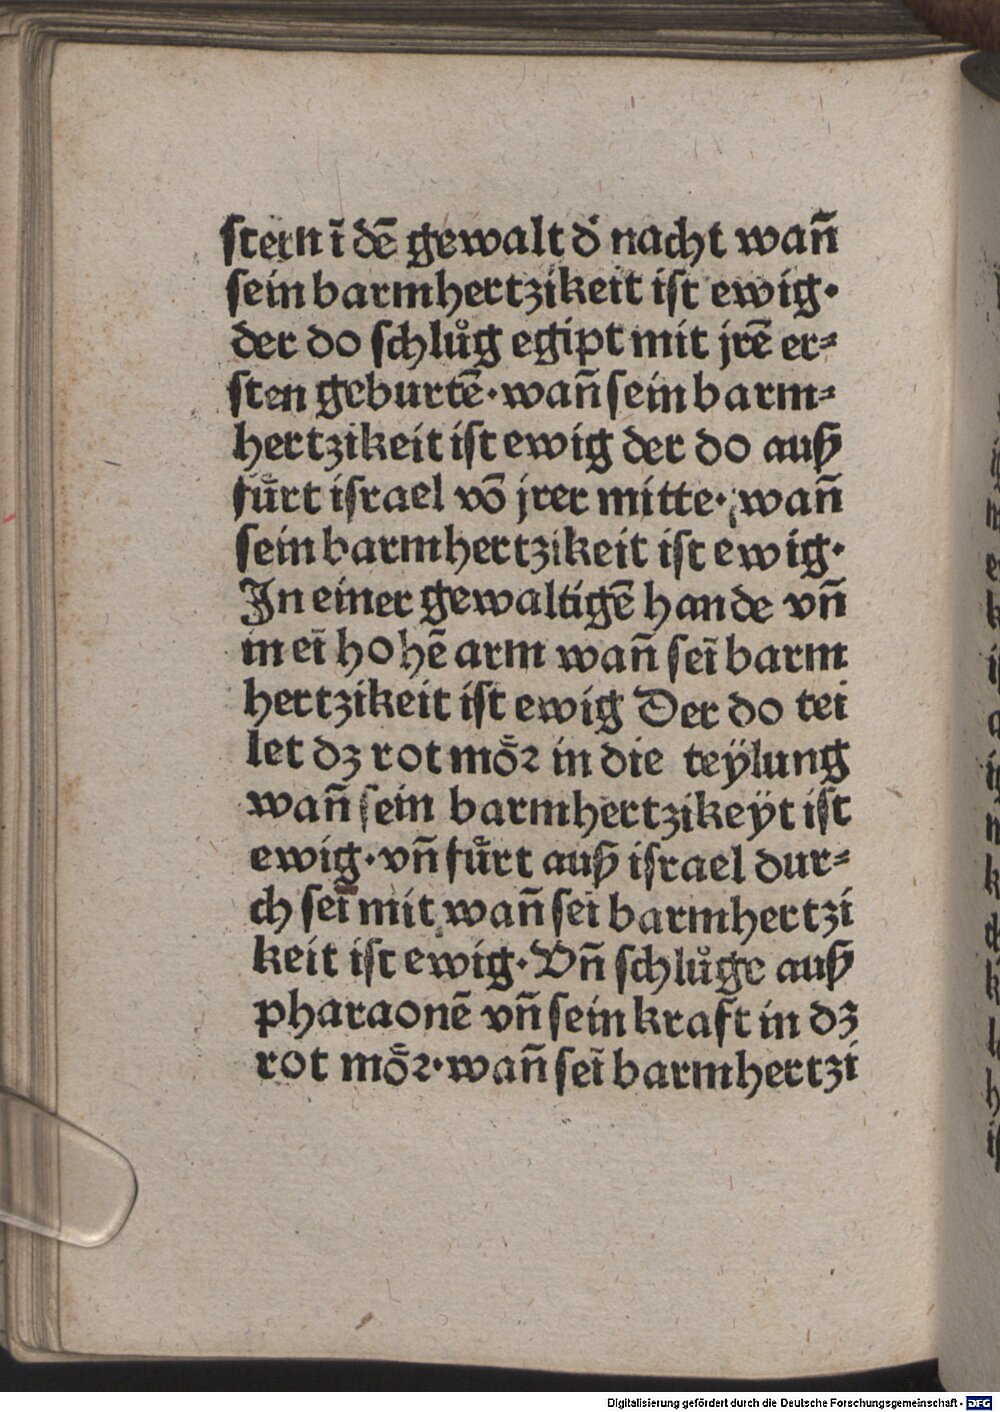 stern ī dē gewalt d̕ nacht wañ
sein barmhertzikeit ist ewig·
der do schlůg egipt mit jrē er⸗
sten geburtē·wañ sein barm⸗
hertzikeit ist ewig der do auß
fůrt israel vō jrer mitte· wañ
sein barmhertzikeit ist ewig·
In einer gewaltigē hande vñ
in eī hohē arm wañ seī barm
hertzikeit ist ewig Der do tei
let dʒ rot moͤꝛ in die teÿlung
wañ sein barmhertzikeÿt ist
ewig·vñ fůrt auß israel dur⸗
ch seī mit wañ sei barmhertzi
keit ist ewig·Vñ schlůge auß
pharaonē vñ sein kraft in dʒ
rot moͤꝛ·wañ seī barmhertzi
Digitalisierung gefördert durch die Deutsche Forschungsgemeinschaft - DFG